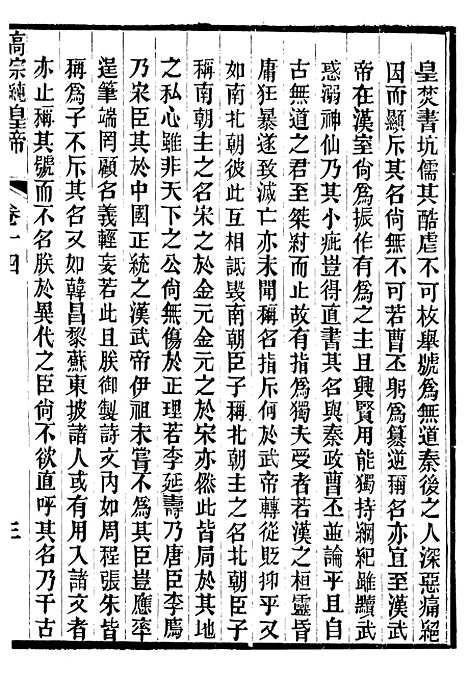 皇焚書坑儒其酷虐不可枚舉號爲無道秦後之人深惡痛絕
因而顯斥其名尙無不可若曹丕躬爲纂逆稱名亦宜至漢武
帝在漢室尙爲振作有爲之主且興賢用能獨持綱紀雖黷武
惑溺神仙乃其小疵豈得直書其名與秦政曹丕並論乎且自
古無道之君至桀紂而止故有指爲獨夫受者若漢之桓靈昏
庸狂暴遂致滅亡亦未聞稱名指斥何於武帝轉從貶抑乎又
如南北朝彼此互相詆毀南朝臣子稱北朝主之名北朝臣子
稱南朝主之名宋之於金元金元之於宋亦然此皆局於其地
之私心雖非天下之公尙無傷於正理若李延壽乃唐臣李廌
乃宋臣其於中國正統之漢武帝伊祖未嘗不爲其臣豈應率
逞筆端罔顧名義輕妄若此且朕御製詩文內如周程張朱皆
稱爲子不斥其名又如韓昌黎蘇東披諸人或有用入諸文者
亦止稱其號而不名朕於異代之臣尙不欲直呼其名乃千古
高宗純皇帝 卷十四 三